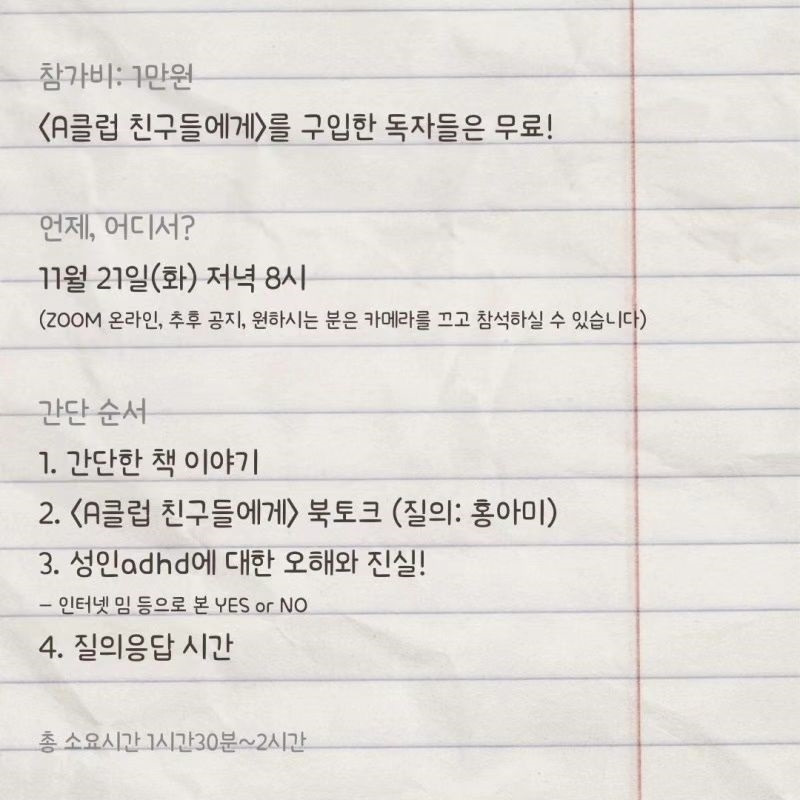 참가비: 1만원
<A클럽 친구들에게>를 구입한 독자들은 무료!
언제, 어디서?
11월 21일(화) 저녁 8시
(ZOOM 온라인, 추후 공지, 원하시는 분은 카메라를 끄고 참석하실 수 있습니다)
간단 순서
1. 간단한 책 이야기
2. <A클럽 친구들에게> 북토크 (질의: 홍아미)
3. 성인adhd에 대한 오해와 진실!
- 인터넷 밈 등으로 본 YES or NO
4. 질의응답 시간
총 소요시간 1시간30분~2시간